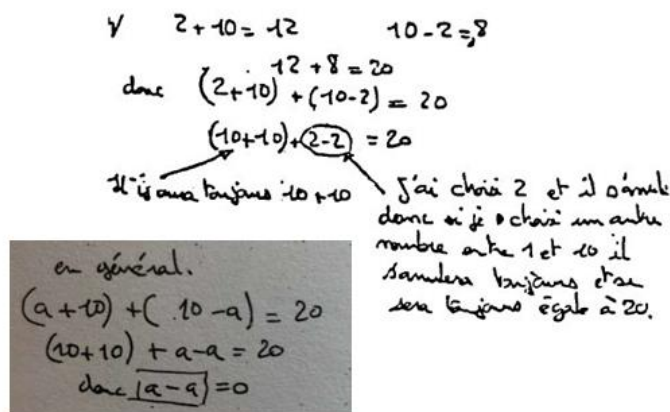 2+10=12 10-2=8
12+8=20
donc (2+10)+(10-2)=20
(10+10)+2-2=20
Il y aura toujours 10+10
J'ai choisi 2 et il s'annule
donc si je choisi un autre
nombre entre 1 et 10 il
s'annulera toujours et se
sera toujours égale à 20.
en général.
(a+10)+(10-a)=20
(10+10)+a-a=20
donc a-a=0